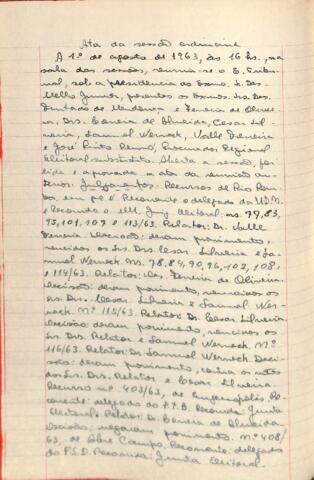 Ata da sessão ordinária
A 1º de agosto de 1963, às 16 hs., na
sala das sessões, reuniu-se o E. Tribu-
nal, sob a presidência do Exmo. Sr. Des.
Mello Junior, presentes os Exmos. Srs. Des.
Furtado de Mendonça e Ferreira de Olivei-
ra, Drs. Carneiro de Almeida, Cesar Sil-
veira, Samuel Werneck, Valle Ferreira
e José Pinto Renó, Procurador Regional
Eleitoral substituto. Aberta a sessão, foi
lida e aprovada a ata da reunião an-
terior. Julgamentos: Recursos de Rio Pom-
ba, em que é Recorrente o delegado da U.D.N.
e Recorrido o MM. Juiz Eleitoral: ns. 79, 83,
95, 101, 107 e 113/63. Relator: Dr. Valle
Ferreira. Decisão: deram provimento,
vencidos os Srs. Drs. Cesar Silveira e Sa-
muel Werneck. Ns. 78, 84, 90, 96, 102, 108
e 114/63. Relator: Des. Ferreira de Oliveira.
Decisão: deram provimento, vencidos os
Srs. Drs. Cesar Silveira e Samuel Wer-
neck. Nº 115/63. Relator: Dr. Cesar Silveira.
Decisão: deram provimento, vencidos os
Srs. Drs. Relator e Samuel Werneck. Nº
116/63. Relator: Dr. Samuel Werneck. Deci-
são: deram provimento, contra os votos
dos Srs. Drs. Relator e Cesar Silveira.
Recurso nº 403/63, de Eugenópolis, Re-
corrente: delegado do P.T.B. Recorrida: Junta
Eleitoral. Relator: Dr. Carneiro de Almeida.
Decisão: negaram provimento. Nº 408/
63, de Abre Campo. Recorrente: delegado
do P.S.D. Recorrida: Junta Eleitoral.